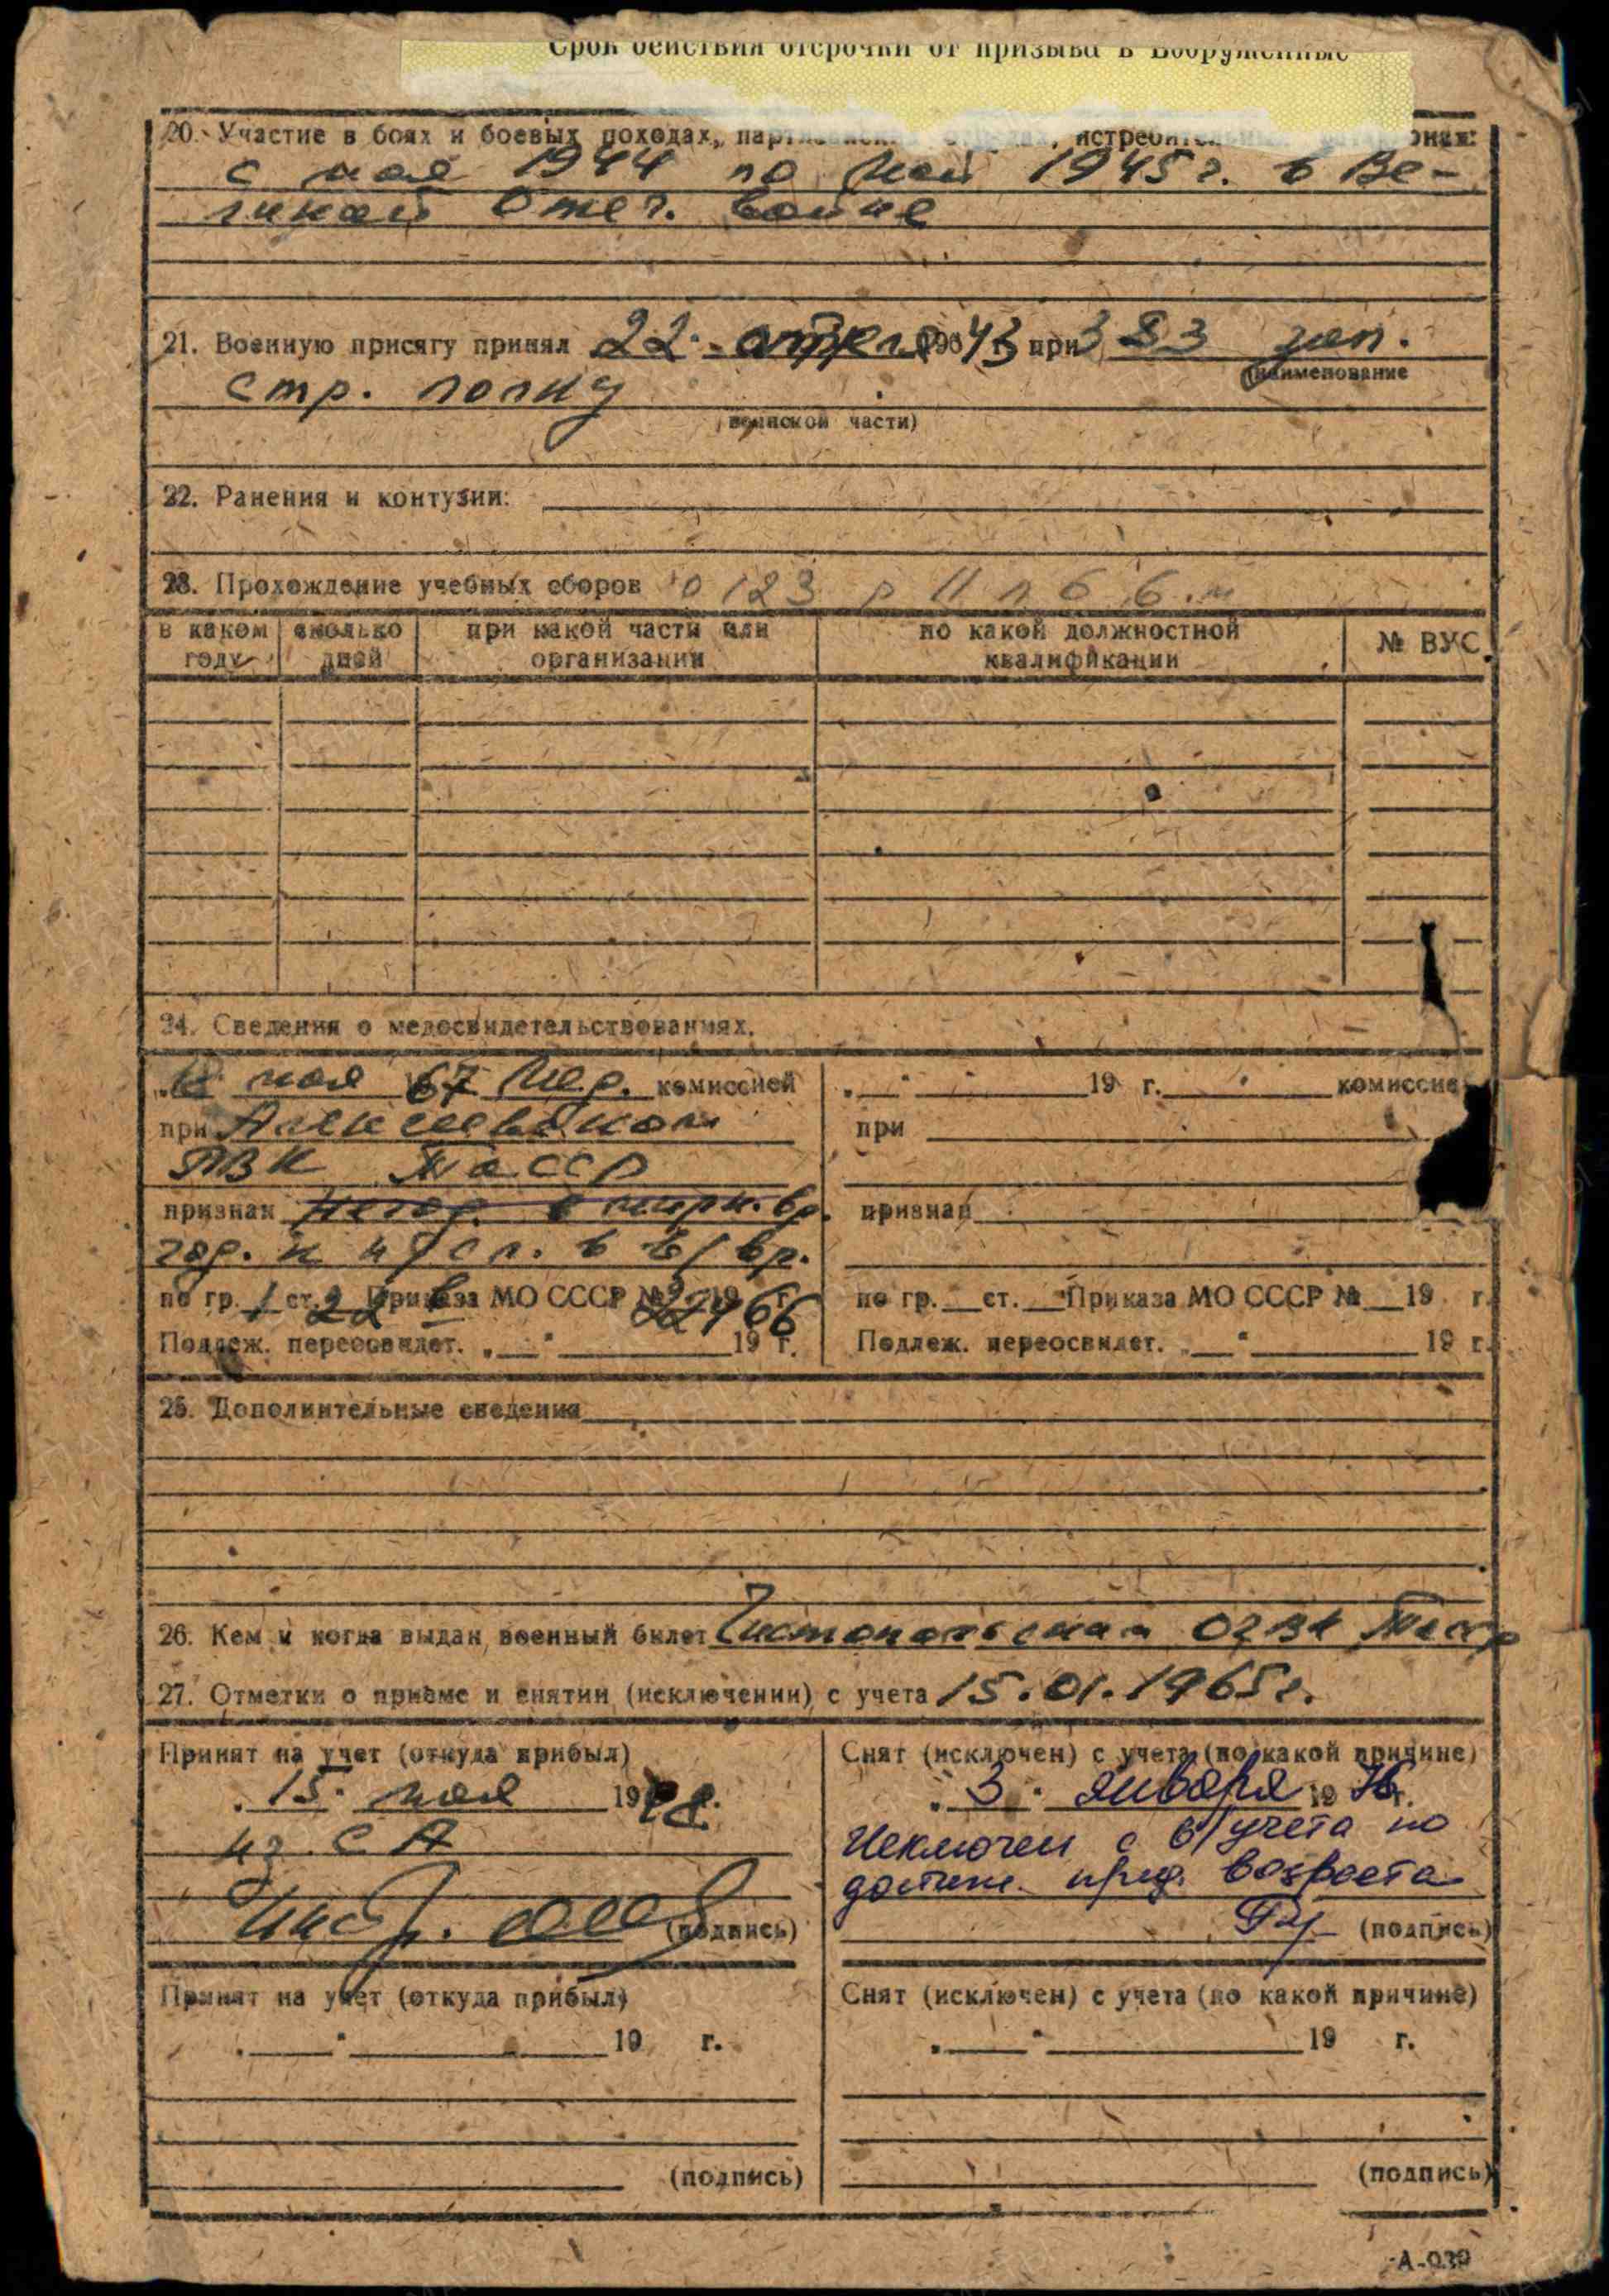 Срок действия отсрочки от призыва в Вооруженные
20. Участие в боях и боевых походах, партизанских отрядах, истребительных батальонах:
с мая 1944 по май 1945 г. в Ве-
ликой Отеч. войне
21. Военную присягу принял 22 апреля 1943 при 383 зап.
(наименование
стр. полку
воинской части)
22. Ранения и контузии:
23. Прохождение учебных сборов
в каком году сколько дней при какой части или организации по какой должностной квалификации № ВУС
24. Сведения о медосвидетельствованиях.
мая 67 Мед. комиссией
при Алексеевском
РВК ТАССР
признан негод. в мирн. вр.
год. к н/сл. в в/вр.
по гр. 1 ст. 22 в Приказа МО СССР № 224 1966 г.
Подлеж. переосвидет. „ “ 19 г.
„ “ 19 г. комиссией
при
признан
по гр. ст. Приказа МО СССР № 19 г.
Подлеж. переосвидет. „ “ 19 г.
25. Дополнительные сведения
26. Кем и когда выдан военный билет Чистопольским ОГВК ТАССР
27. Отметки о приеме и снятии (исключении) с учета 15.01.1965 г.
Принят на учет (откуда прибыл)
15 мая 19
из СА
(подпись)
Снят (исключен) с учета (по какой причине)
3 января 1976 г.
Исключен с в/учета по
достиж. пред. возраста
(подпись)
Принят на учет (откуда прибыл)
„ “ 19 г.
(подпись)
Снят (исключен) с учета (по какой причине)
„ “ 19 г.
(подпись)
А-039